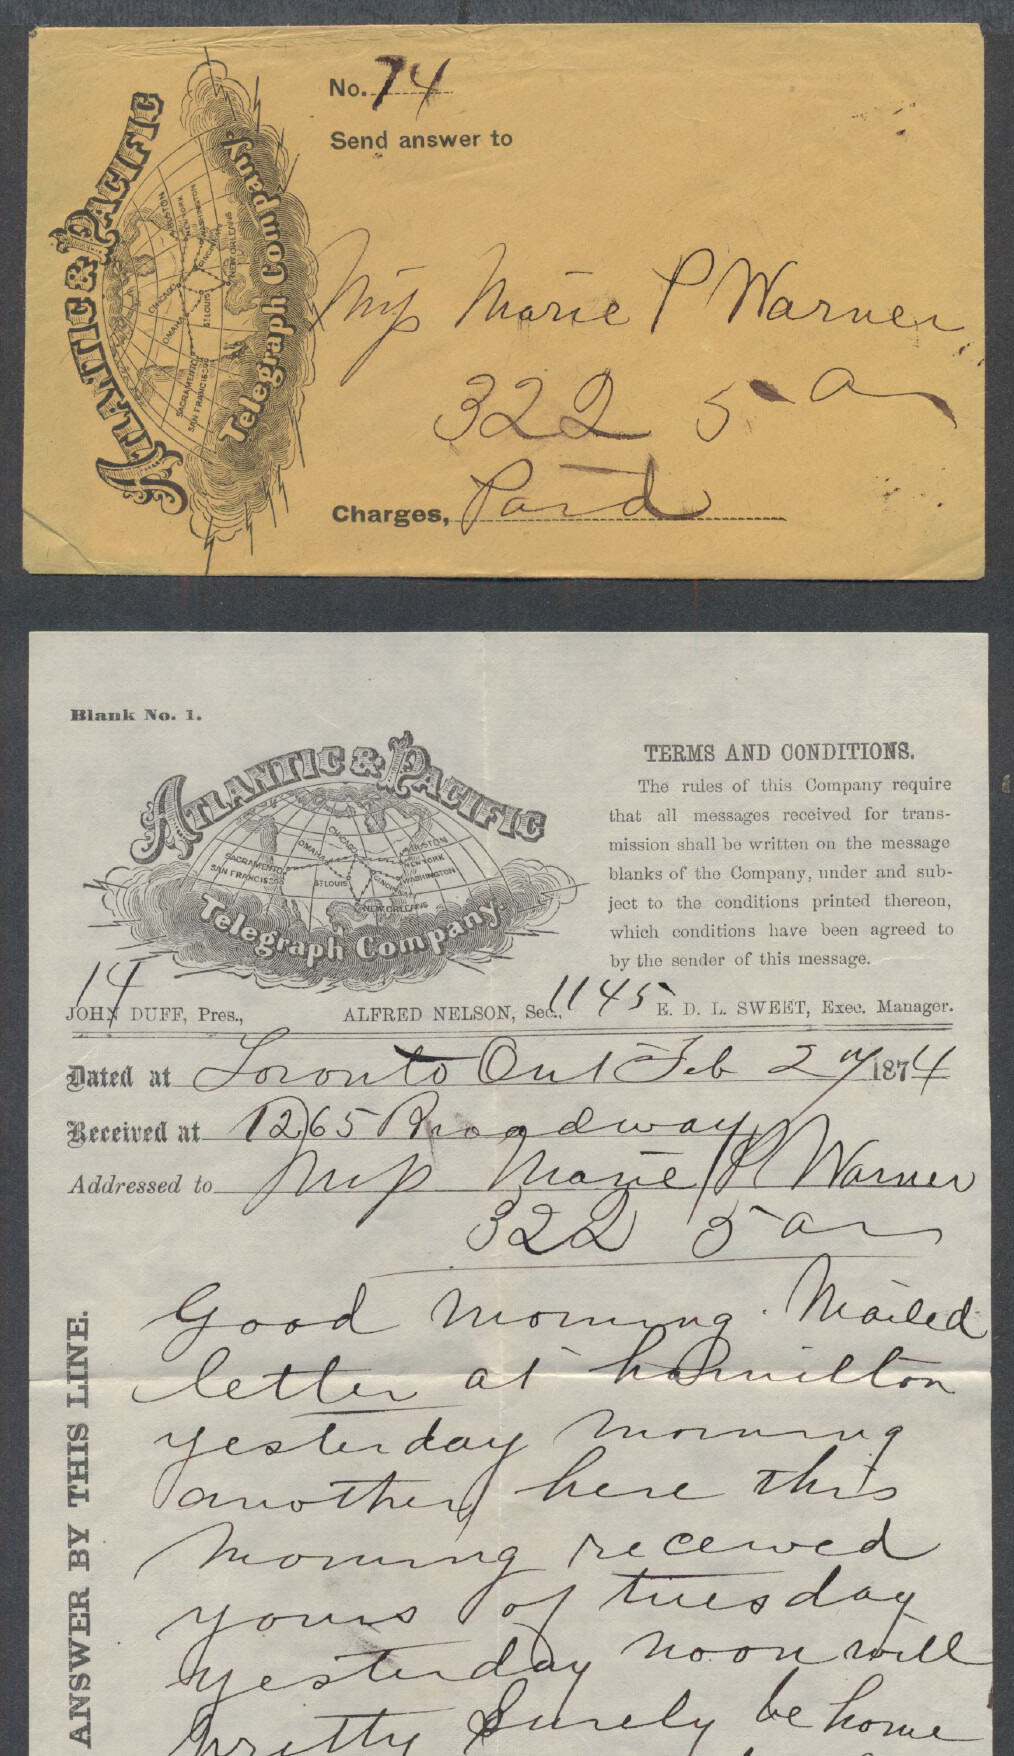 No. 74
Send answer to
ATLANTIC & PACIFIC
Telegraph Company.
BOSTON
NEW YORK
WASHINGTON
CINCINNATI
NEW ORLEANS
CHICAGO
ST LOUIS
OMAHA
SACRAMENTO
SAN FRANCISCO
Miss Marie P Warner
322 5 av
Charges, Paid
Blank No. 1.
ATLANTIC & PACIFIC
Telegraph Company.
SACRAMENTO
SAN FRANCISCO
OMAHA
CHICAGO
ST LOUIS
CINCINNATI
BOSTON
NEW YORK
WASHINGTON
NEW ORLEANS
TERMS AND CONDITIONS.
The rules of this Company require
that all messages received for trans-
mission shall be written on the message
blanks of the Company, under and sub-
ject to the conditions printed thereon,
which conditions have been agreed to
by the sender of this message.
14 1145
JOHN DUFF, Pres., ALFRED NELSON, Sec., E. D. L. SWEET, Exec. Manager.
Dated at Toronto Ont Feb 1874
Received at 1265 Broadway
Addressed to Miss Marie P Warner
322 5 av
Good morning. Mailed
letter at hamilton
yesterday morning
another here this
morning received
yours of tuesday
yesterday noon will
pretty surely be home
ANSWER BY THIS LINE.